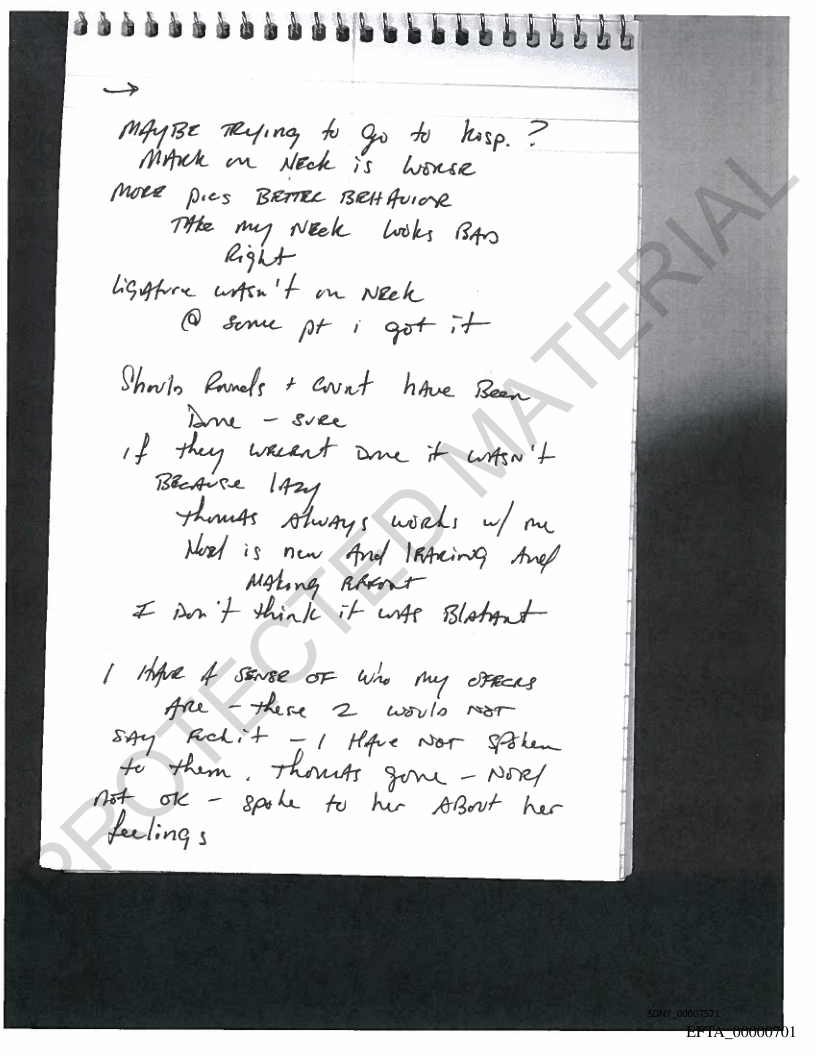 →
MAYBE TRying to go to hosp. ?
MARK on NECK is WORSE
MORE pics BETTER BEHAVIOR
TAke my NEck looks BAD
Right
LigAture wASn't on NECK
@ some pt i got it
Should Rounds + count hAve Been
Done - SURE
If they WEREnt Done it wASN't
BECAUSE lAzy
thomAS AlwAyS works w/ me
Noel is new And lEARning And
MAking EFFORT
I Don't think it wAS BlAtAnt
I HAVE A SENSE OF Who my OFFICERS
ARE - these 2 would NOT
SAY Fuck it - I HAVE NOT SPOken
to them. ThomAS gone - NOEl
Not OK - spoke to her ABout her
feelings
PROTECTED MATERIAL
SDNY_00007571
EFTA_00000701